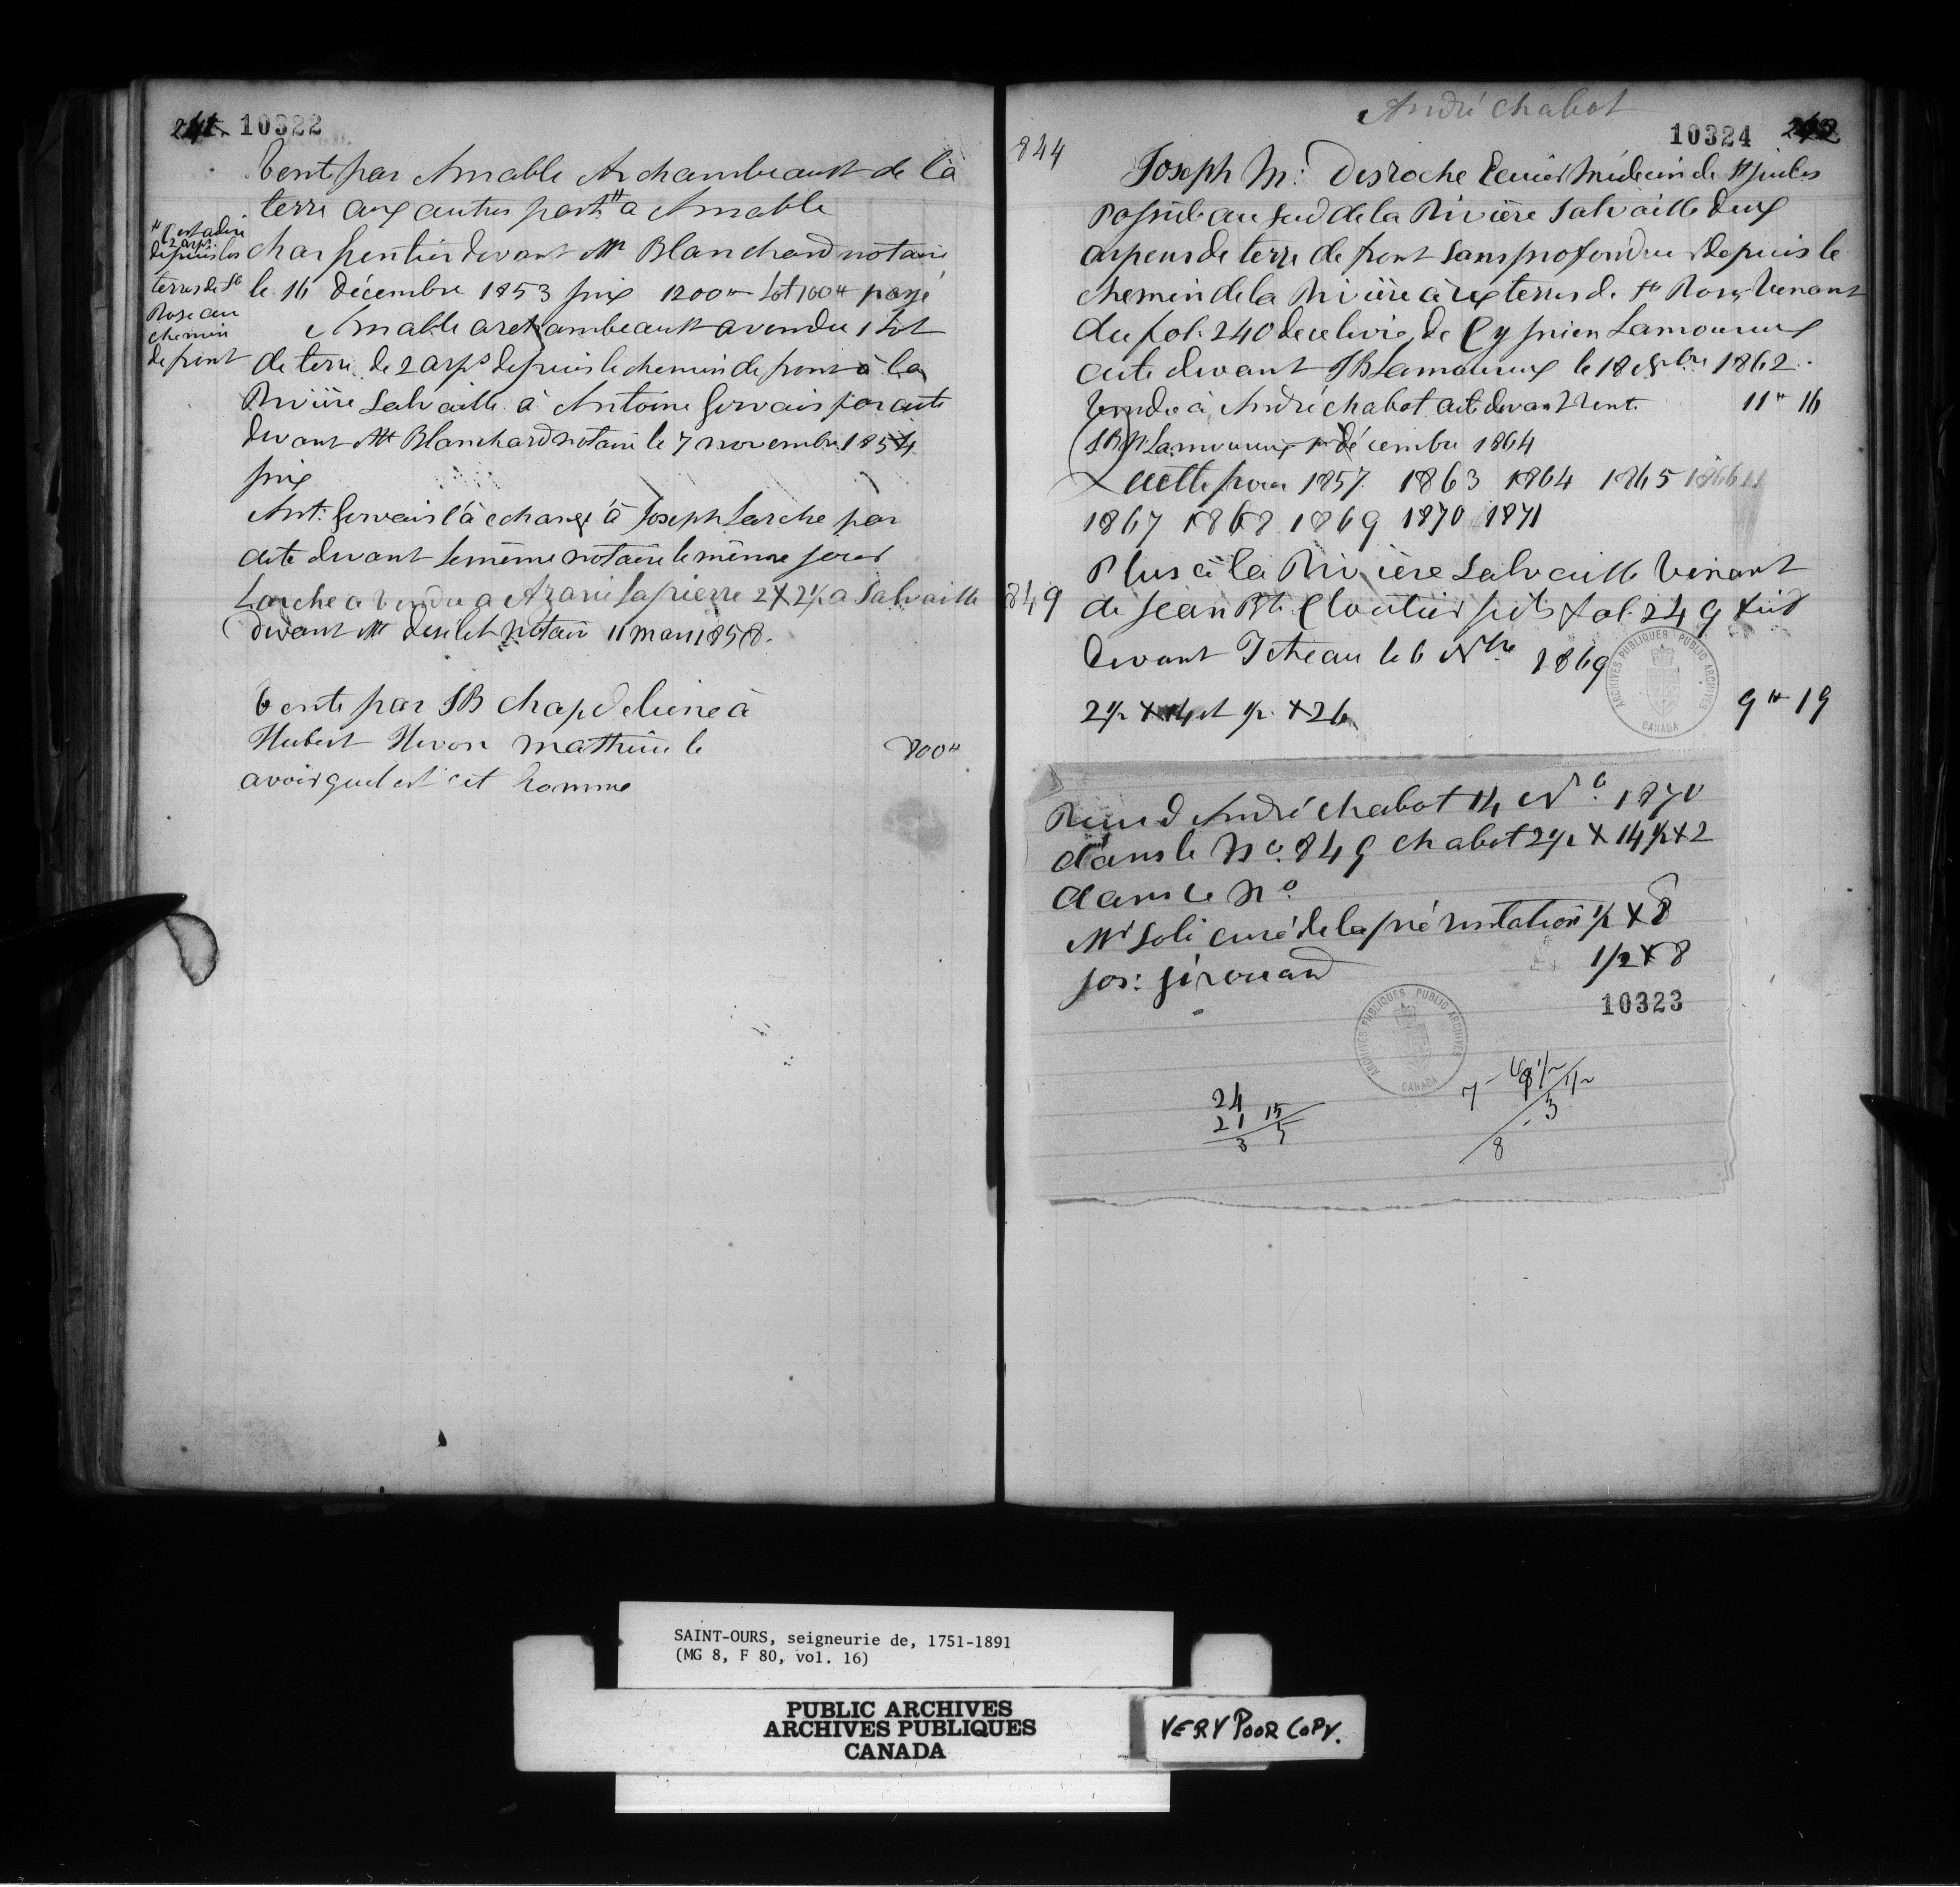 241. 10322
Vente par Amable Archambeault de la
terre aux autres parts # a Amable
Charpentier devant Mr Blanchard notaire
le 16 décembre 1853 prix 1200 # Lot 100 # payé
# C'est a dire
2 arps.
depuis les
terres de Ste
Rose au
chemin
de front
Amable archambeault a vendu 1 Lot
de terre de 2 arps depuis le chemin de front à la
Rivière Salvaille à Antoine Gervais par acte
devant Mr Blanchard notaire le 7 novembre 1854
prix
Ant: Gervais l'à echangé à Joseph Larche par
acte devant le même notaire le même jour
Larche a vendu a Azarie Lapierre 2 X 2 1/2 a Salvaille
devant Mr notaire 11 mars 1858.
Vente par JB Chapdeleine à
Hubert Hevon Matthieu le
800 #
avoir quel est cet homme
André Chabot
10324 242
844
Joseph M: Desroche Ecuier Médecin de St Judes
Possède au sud de la Rivière Salvaille deux
arpens de terre de front sans profondeur depuis le
chemin de la Rivière aux terres de Ste Rose, Venant
du fol. 240 de ce livre, de Cyprien Lamoureux
acte devant JB Lamoureux le 18 1862.
Vendu à André chabot acte devant rente 11 # 16
JB Lamoureux 1er décembre 1864
X acttepour 1857 1863 1864 1865 1866
1867 1868 1869 1870 1871
Plus à la Rivière Salvaille Venant
849
de Jean Bte Cloutier fils fol. 249
Devant Teteau le 6 Nbre 1869
2 1/2 X 14 et 1/2 X 26
9 # 19
ARCHIVES PUBLIQUES PUBLIC ARCHIVES
CANADA
André Chabot 14 1870
dans le No. 849 Chabot 2 1/2 X 14 1/2 X 2
dans le No
Mr Soli curé de la présentation 1/2 X 8
Jos: Girouard 1/2 X 8
10323
ARCHIVES PUBLIQUES PUBLIC ARCHIVES
CANADA
24
21 15
3 5
8 3
SAINT-OURS, seigneurie de, 1751-1891
(MG 8, F 80, vol. 16)
PUBLIC ARCHIVES
ARCHIVES PUBLIQUES
CANADA
VERY POOR COPY.